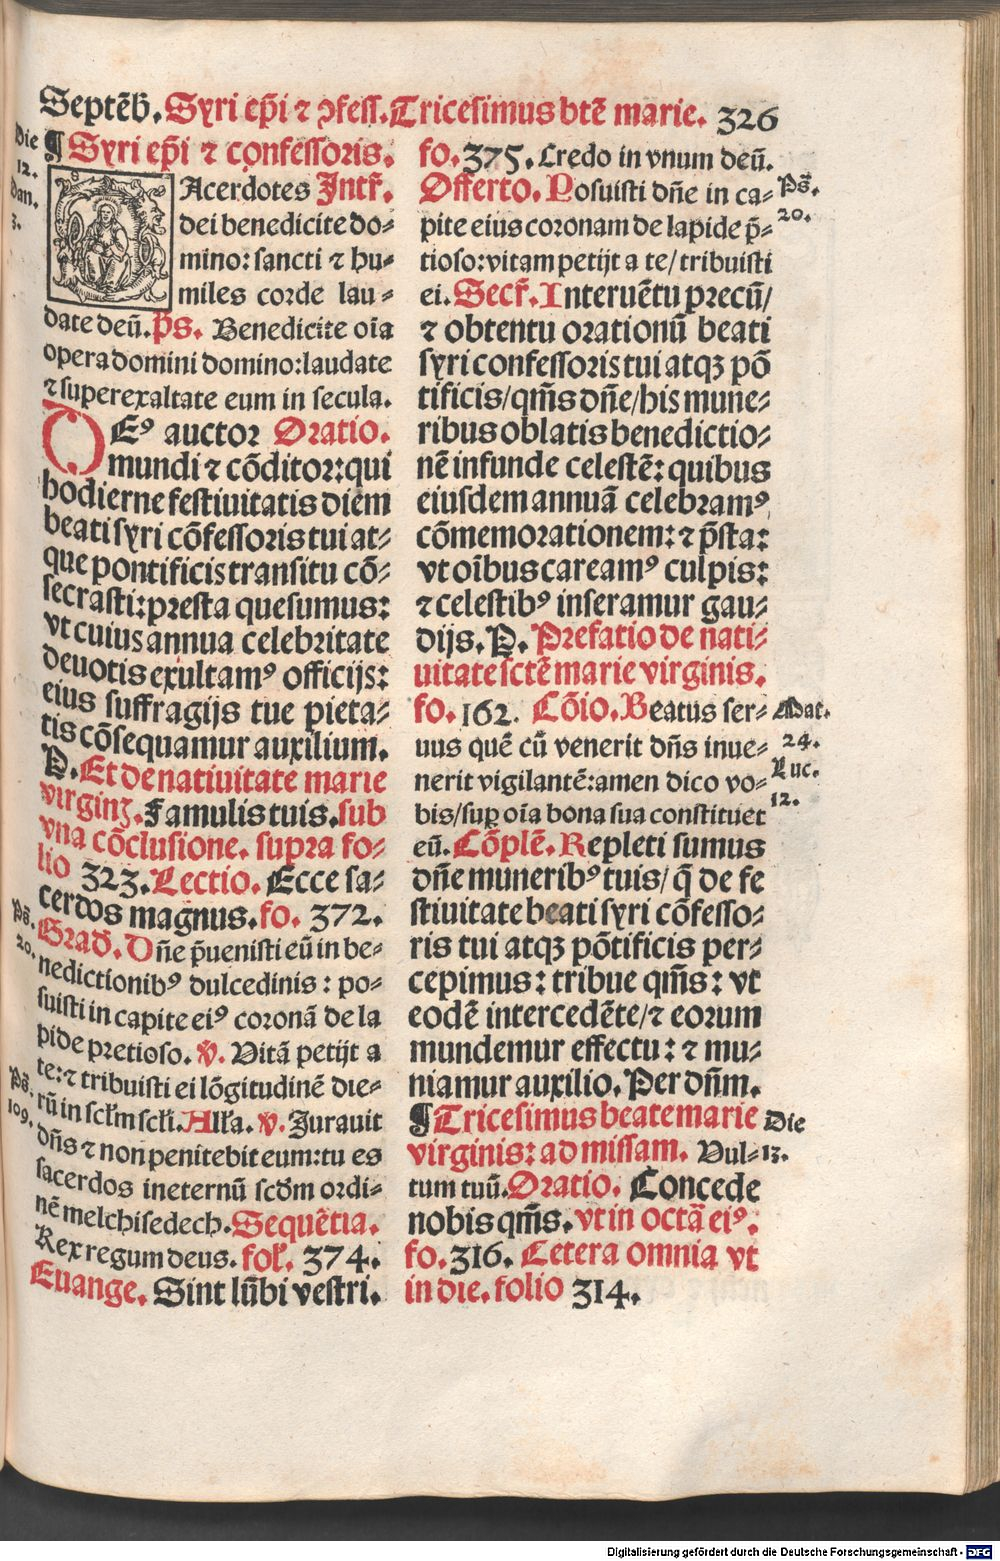 Septēb. Syri ep̄i ⁊ ꝯfess. Tricesimus btē marie. 326
Die
12.
Dan.
3.
¶ Syri ep̄i ⁊ confessoris.
SAcerdotes Intr̄.
dei benedicite do⸗
mino: sancti ⁊ hu⸗
miles corde lau⸗
date deū. p̄s. Benedicite oīa
opera domini domino: laudate
⁊ superexaltate eum in secula.
DEꝰ auctor Oratio.
mundi ⁊ cōditor: qui
hodierne festiuitatis diem
beati syri cōfessoris tui at⸗
que pontificis transitu cō⸗
secrasti: presta quesumus:
vt cuius annua celebritate
deuotis exultamꝰ officijs:
eius suffragijs tue pieta⸗
tis cōsequamur auxilium.
P. Et de natiuitate marie
virginꝫ. Famulis tuis. sub
vna cōclusione. supra fo⸗
lio 323. Lectio. Ecce sa⸗
cerdos magnus. fo. 372.
Ps̄.
20.
Grad̄. Dn̄e p̄uenisti eū in be⸗
nedictionibꝰ dulcedinis: po⸗
suisti in capite eiꝰ coronā de la
pide pretioso. v̄. Vitā petijt a
te: ⁊ tribuisti ei lōgitudinē die⸗
Ps̄.
109.
rū in scłm scłi. Ałła. v̄. Jurauit
dn̄s ⁊ non penitebit eum: tu es
sacerdos ineternū scd̄m ordi⸗
nē melchisedech. Sequētia.
Rex regum deus. foł. 374.
Euange. Sint lūbi vestri.
fo. 375. Credo in vnum deū.
Offerto. Posuisti dn̄e in ca⸗
Ps̄.
20.
pite eius coronam de lapide p̄⸗
tioso: vitam petijt a te/ tribuisti
ei. Secr̄. Interuētu precū/
⁊ obtentu orationū beati
syri confessoris tui atqꝫ pō
tificis/ qm̄s dn̄e/ his mune⸗
ribus oblatis benedictio⸗
nē infunde celestē: quibus
eiusdem annuā celebramꝰ
cōmemorationem: ⁊ p̄sta:
vt oībus careamꝰ culpis:
⁊ celestibꝰ inseramur gau⸗
dijs. P. Prefatio de nati⸗
uitate sctē marie virginis.
fo. 162. Cōio. Beatus ser⸗
Mat.
24.
Luc.
12.
uus quē cū venerit dn̄s inue⸗
nerit vigilantē: amen dico vo⸗
bis/ suꝑ oīa bona sua constituet
eū. Cōplē. Repleti sumus
dn̄e muneribꝰ tuis/ q̄ de fe
stiuitate beati syri cōfesso⸗
ris tui atqꝫ pōtificis per⸗
cepimus: tribue qm̄s: vt
eodē intercedēte/ ⁊ eorum
mundemur effectu: ⁊ mu⸗
niamur auxilio. Per dn̄m.
¶ Tricesimus beate marie
Die
13.
virginis: ad missam. Vul⸗
tum tuū. Oratio. Concede
nobis qm̄s. vt in octā eiꝰ.
fo. 316. Cetera omnia vt
in die. folio 314.
Digitalisierung gefördert durch die Deutsche Forschungsgemeinschaft - DFG